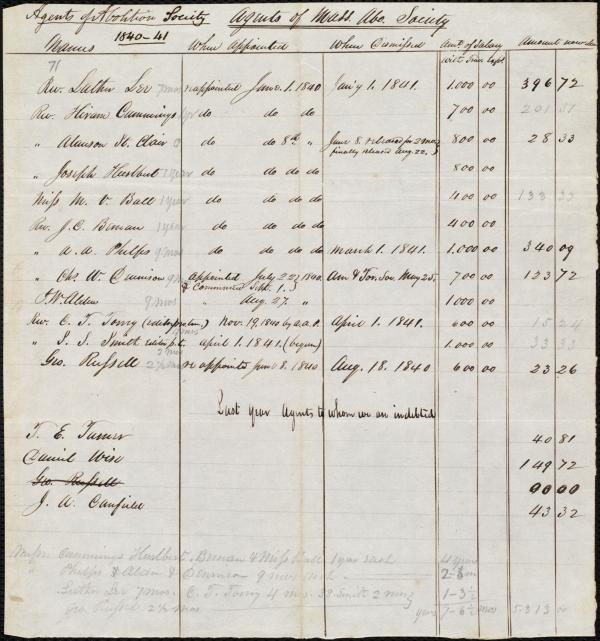 Agents of Abolition Society Agents of Mass Abo. Society
1840-41
Names When Appointed When Dismissed Amt. of Salary Amount now due
71 with time kept
Rev. Luther Lee 7 mos reappointed June 1. 1840 Jan'y 1. 1841. 1.000 00 396 72
Rev. Hiram Cummings 1 yr do do do 700 00 201 51
" Alanson St. Clair do do 8th " June 8. & released for 2 mos } finally released Aug. 22. 800 00 28 33
" Joseph Hurlbert 1 year do do do do 800 00
Miss M. V. Ball 1 year do do do do 400 00 133 33
Rev. J. C. Beman 1 year do do do do 400 00
" A. A. Phelps 9 mos do do do do March 1. 1841. 1.000 00 340 09
" Chs. W. Denison 9 mos appointed July 22, 1840. Am & For. Soc. May 25. 700 00 123 72
& Commenced Sept. 1.
J. W. Alden 9 mos " Aug. 27. " 1000 00
Rev. C. T. Torry Nov. 19, 1840 by a.a.P. April 1. 1841. 600 00 15 24
" I. I. Smith editor p.t. 2 mos april 1. 1841. (began) 1.000 00 33 33
Geo. Russell 2½ mos re appointed June 8. 1840 Aug. 18. 1840 600 00 23 26
Last year Agents to whom we are indebted
T. E. Turner 40 81
Daniel Wise 149 72
Geo. Russell 00 00
J. A. Canfield 43 32
Messrs Cummings Hurlbert. Beman & Miss Ball 1 year each 4 years
" Phelps & Alden & Denison 9 mos each 2-3 m
Luther Lee 7 mos. C. T. Torry 4 mos. Smith 2 mos 1-3½
Geo Russell 2½ mos years 7-6½ mos 5.313